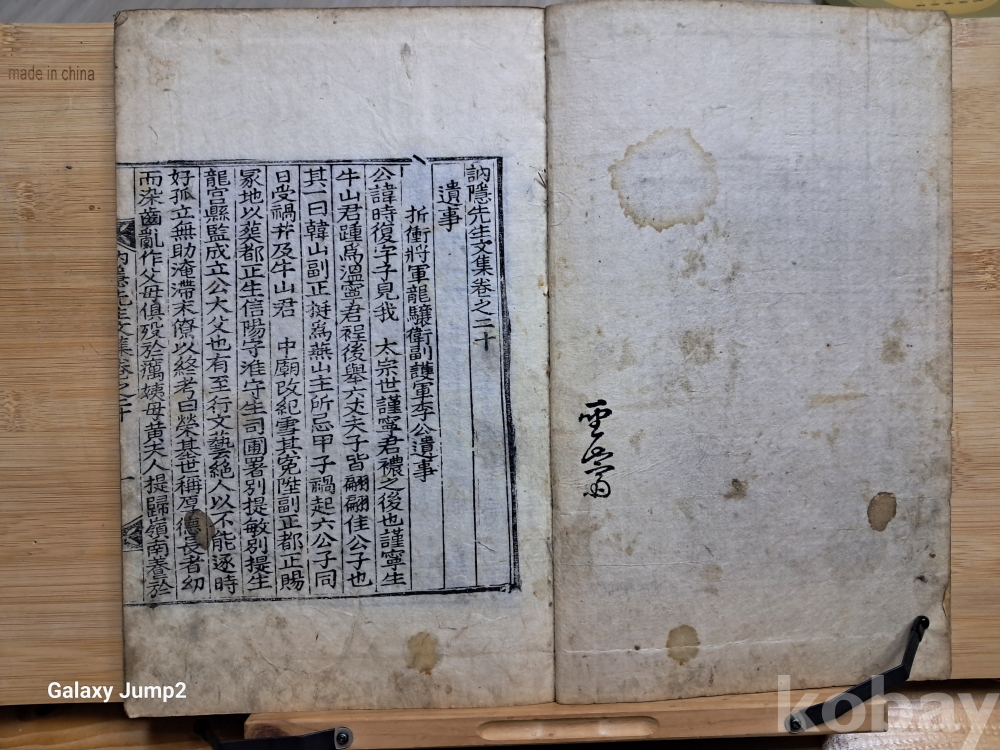 訥隱先生文集卷之二十
遺事
折衝將軍龍驤衛副護軍李公遺事
公諱時復字子見我 太宗世謹寧君襛之後也謹寧生
牛山君踵爲溫寧君裎後舉六丈夫子皆翩翩佳公子也
其一曰韓山副正挺爲燕山主所忌甲子禍起六公子同
日受禍幷及牛山君 中廟改紀雪其冤陞副正都正賜
冢地以葬都正生信陽守淮守生司圃署別提敏別提生
龍宮縣監成立公大父也有至行文藝絶人以不能逐時
好孤立無助淹滯末僚以終考曰榮基世稱厚德長者幼
而染齒亂作父母俱歿於癘姨母黃夫人提歸嶺南養於
made in china
Galaxy Jump2
kobay